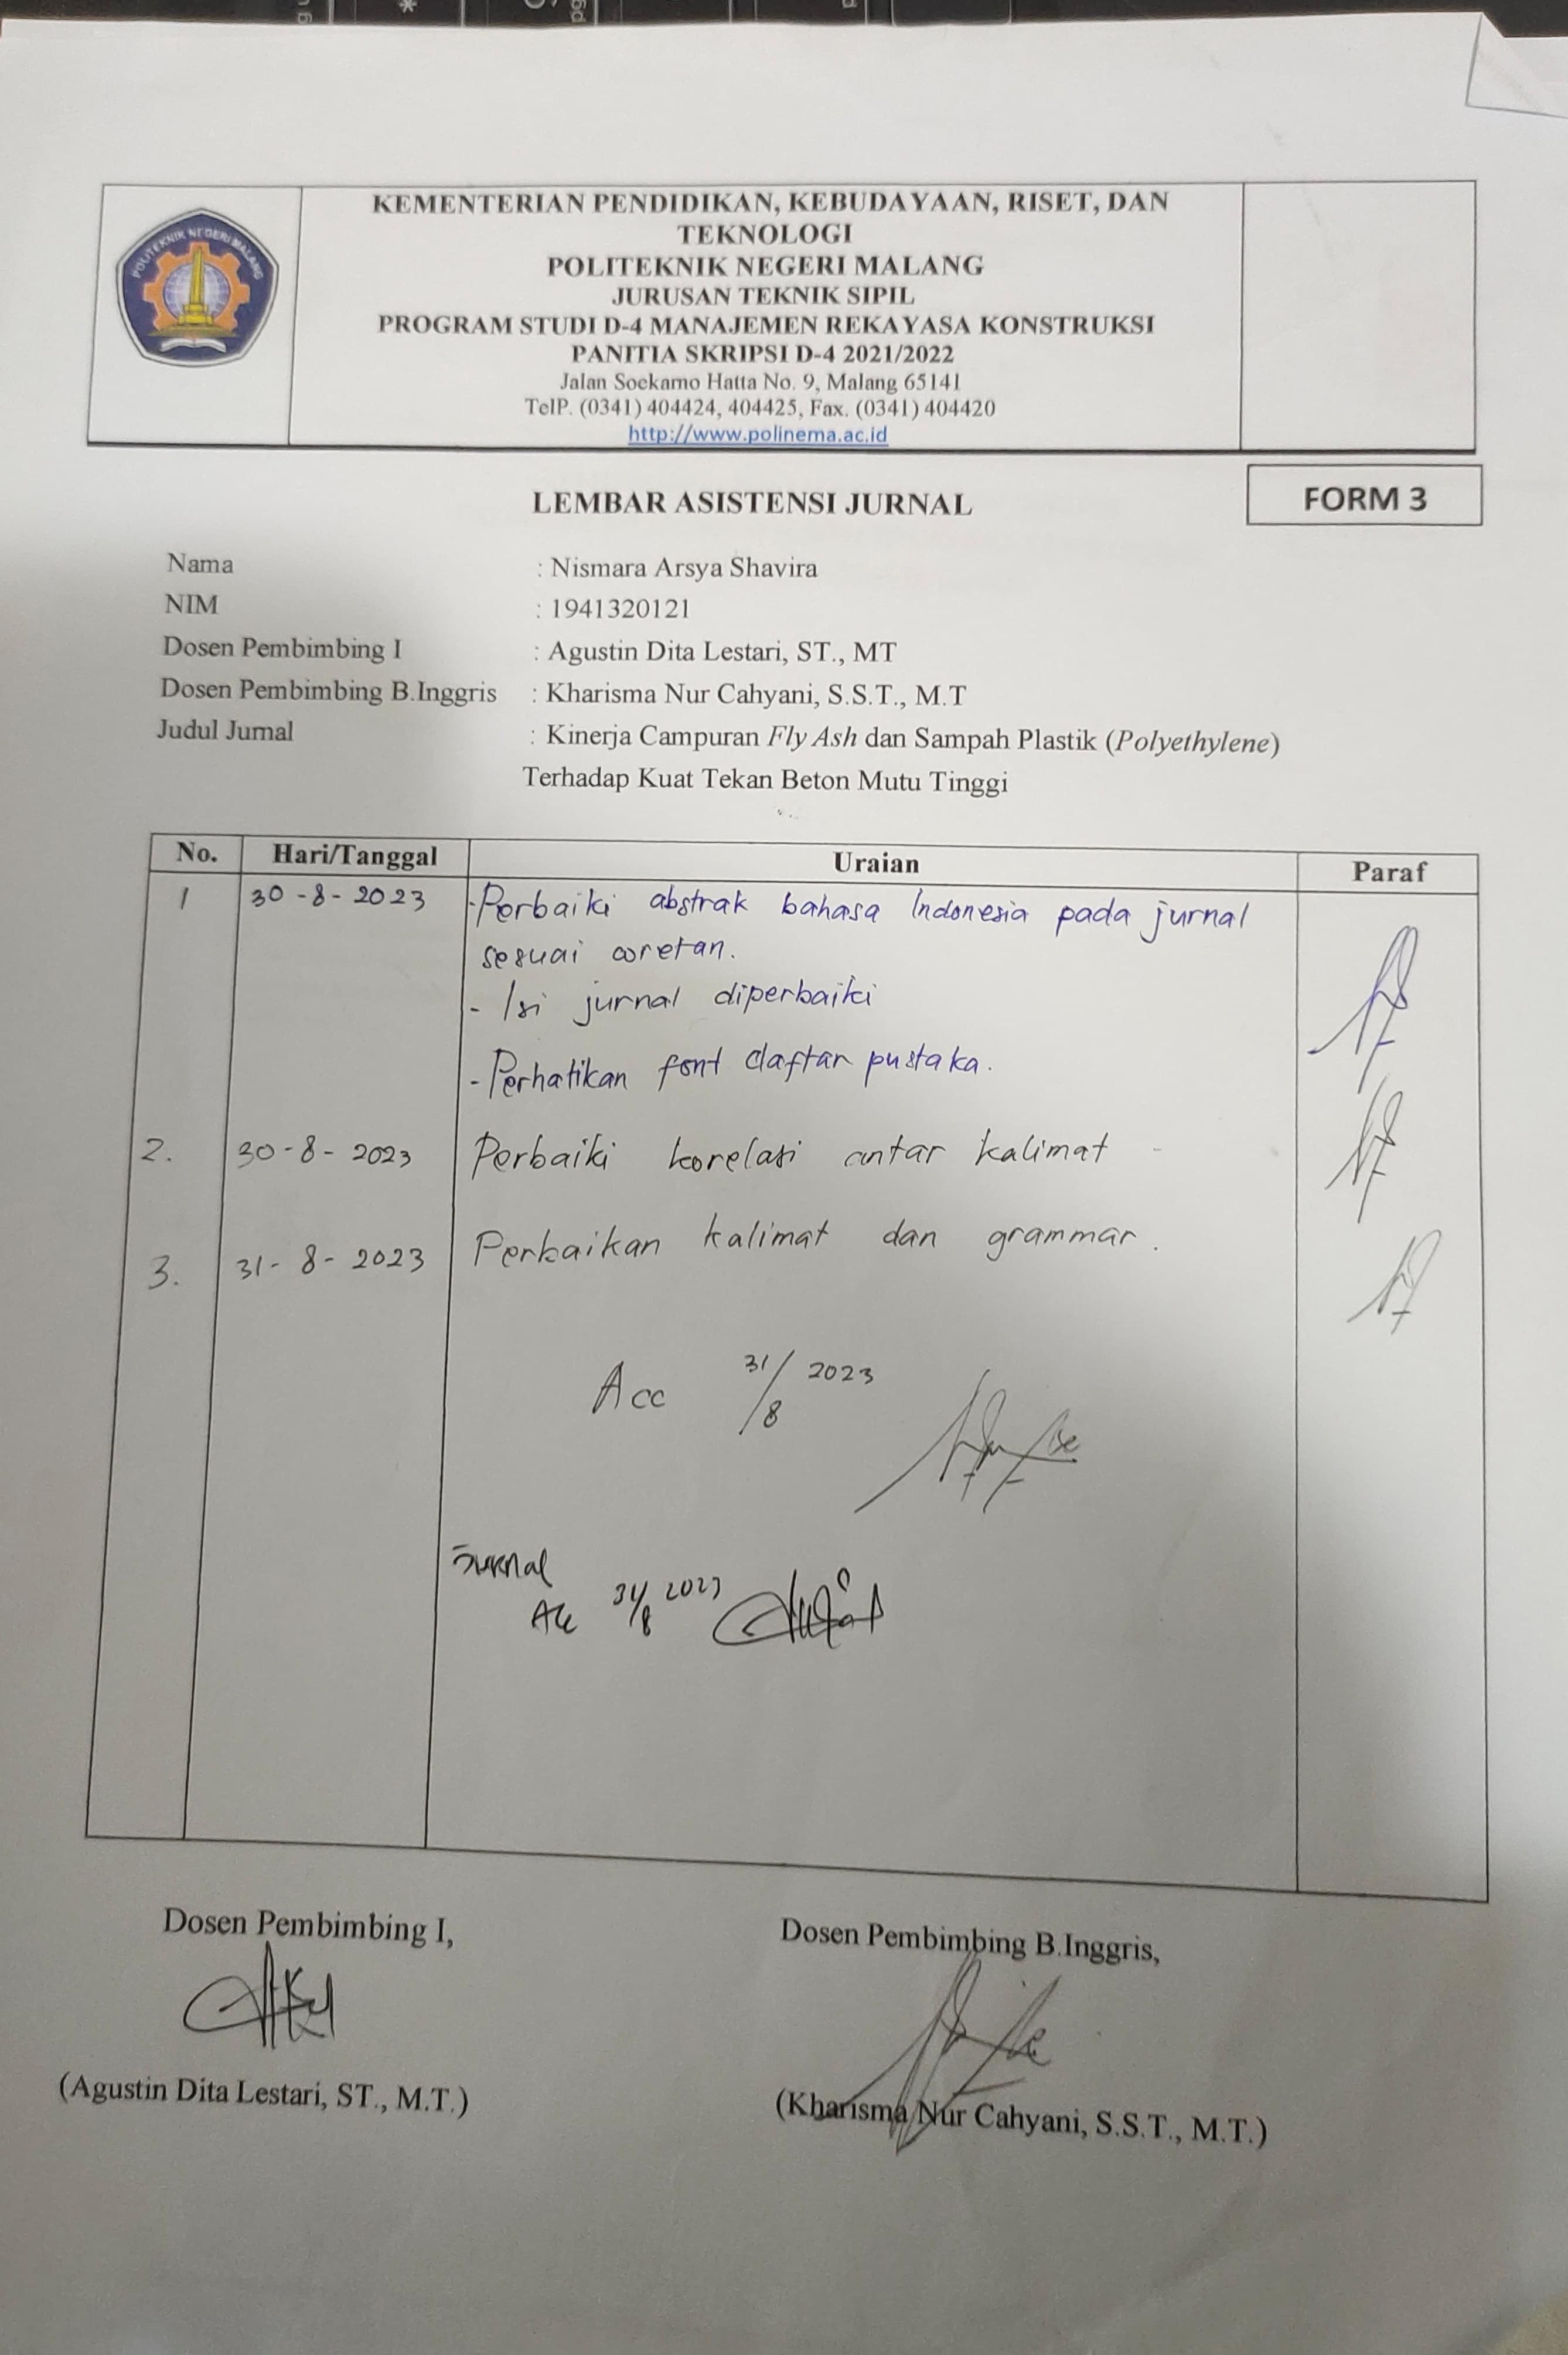 POLITEKNIK NEGERI MALANG
KEMENTERIAN PENDIDIKAN, KEBUDAYAAN, RISET, DAN
TEKNOLOGI
POLITEKNIK NEGERI MALANG
JURUSAN TEKNIK SIPIL
PROGRAM STUDI D-4 MANAJEMEN REKAYASA KONSTRUKSI
PANITIA SKRIPSI D-4 2021/2022
Jalan Soekarno Hatta No. 9, Malang 65141
TelP. (0341) 404424, 404425, Fax. (0341) 404420
http://www.polinema.ac.id
LEMBAR ASISTENSI JURNAL
FORM 3
Nama : Nismara Arsya Shavira
NIM : 1941320121
Dosen Pembimbing I : Agustin Dita Lestari, ST., MT
Dosen Pembimbing B.Inggris : Kharisma Nur Cahyani, S.S.T., M.T
Judul Jurnal : Kinerja Campuran Fly Ash dan Sampah Plastik (Polyethylene)
Terhadap Kuat Tekan Beton Mutu Tinggi
No. Hari/Tanggal Uraian Paraf
1 30-8-2023 - Perbaiki abstrak bahasa Indonesia pada jurnal
sesuai coretan.
- Isi jurnal diperbaiki
- Perhatikan font daftar pustaka.
2. 30-8-2023 Perbaiki korelasi antar kalimat
3. 31-8-2023 Perbaikan kalimat dan grammar.
Acc 31/8 2023
Jurnal
Acc 31/8 2023
Dosen Pembimbing I, Dosen Pembimbing B.Inggris,
(Agustin Dita Lestari, ST., M.T.) (Kharisma Nur Cahyani, S.S.T., M.T.)